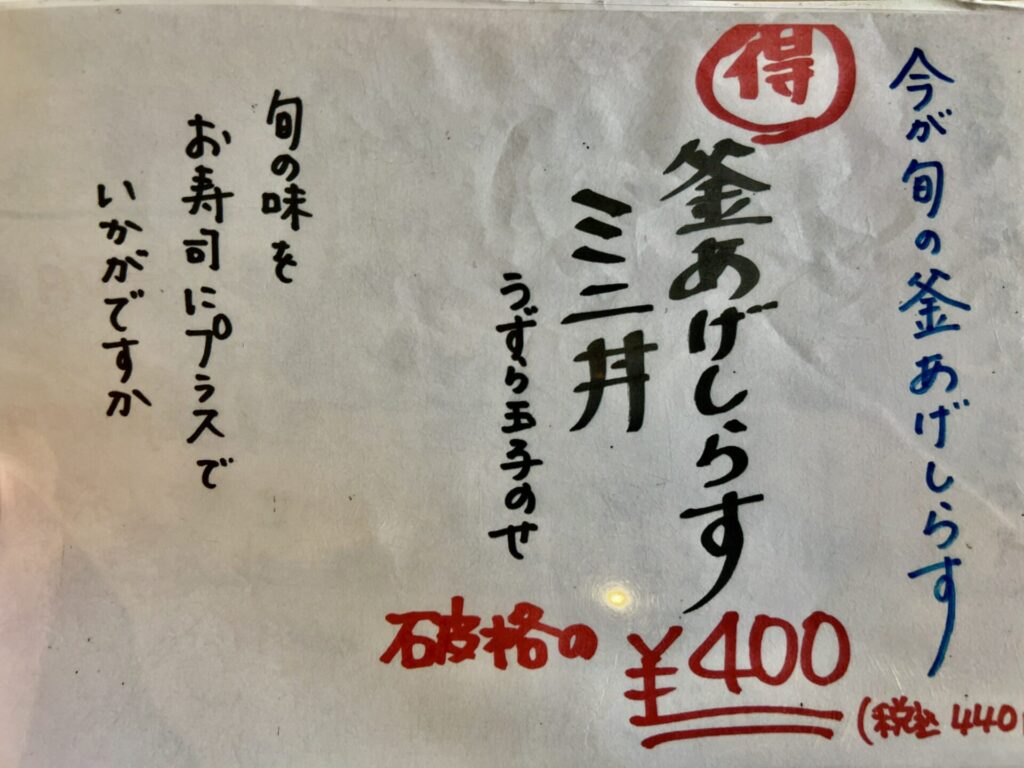 今が旬の釜あげしらす
得
釜あげしらす
ミニ丼
うずら玉子のせ
破格の ¥400
(税込 440
旬の味を
お寿司にプラスで
いかがですか